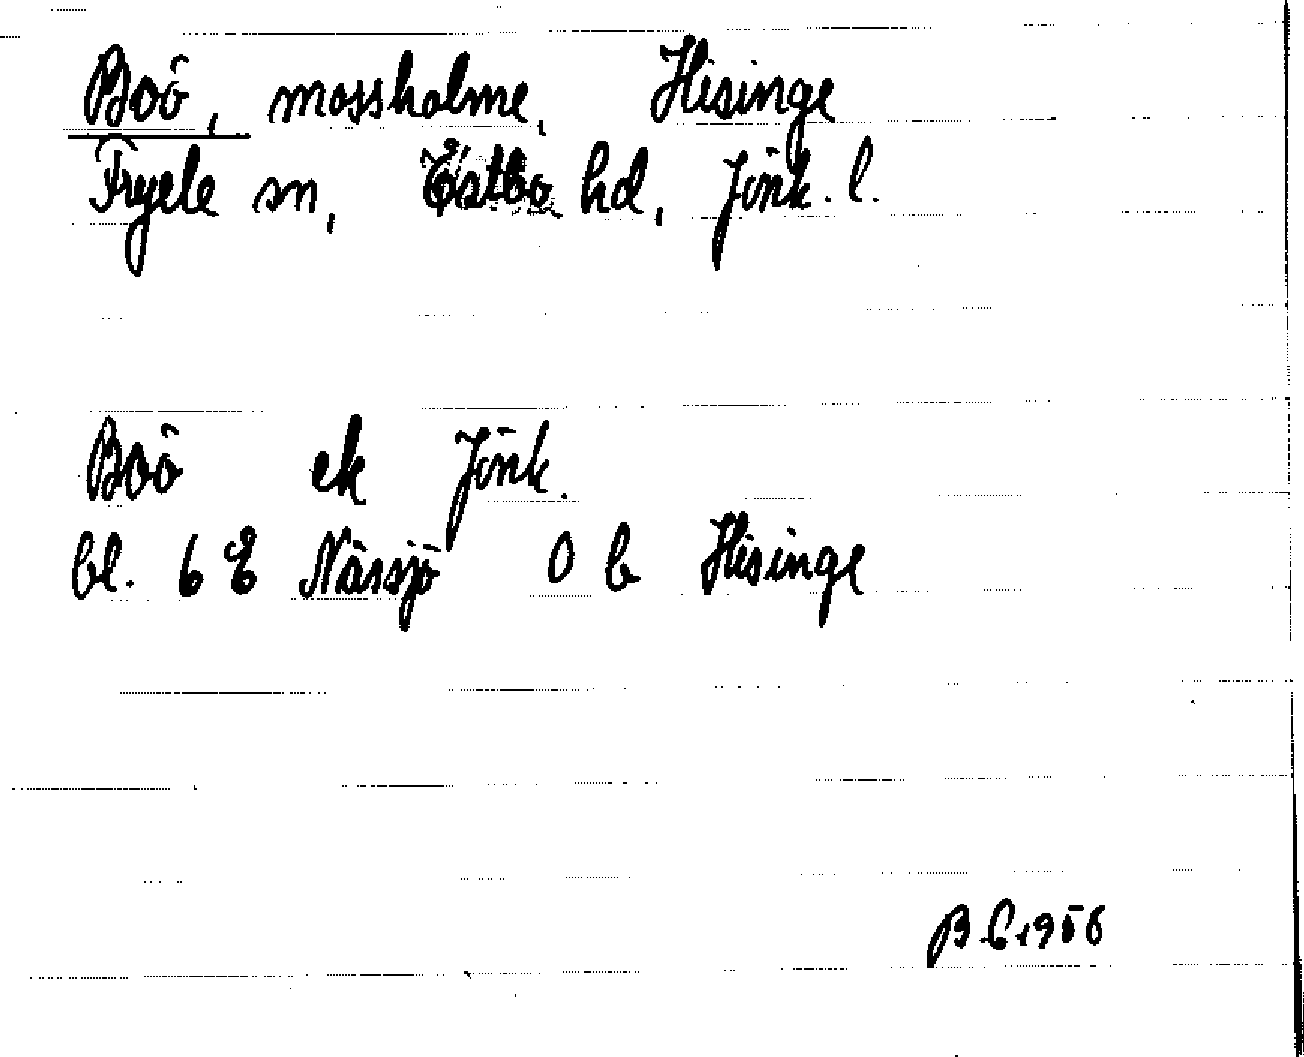 Boö, mossholme, Hisinge
Fryele sn, Östbo hd, Jönk. l.
Boö ek Jönk.
bl. 6 E Nässjö 0 b Hisinge
B C 1956